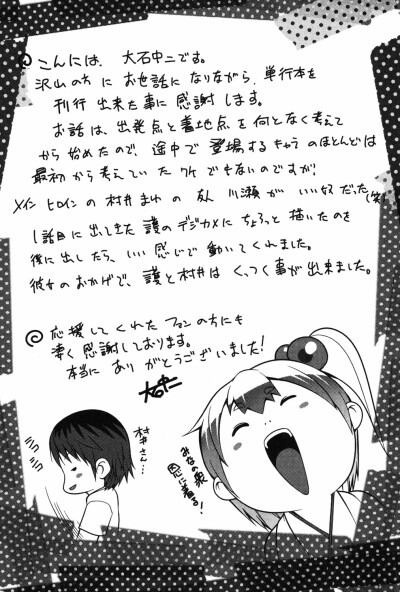 こんには、大石中二です。
沢山の方にお世話になりながら、単行本を
刊行出来た事に感謝します。
お話は、出発点と着地点を何となく考えて
から始めたので、途中で登場するキャラのほとんどは
最初から考えていたワケでもないのですが!
メインヒロインの村井まわりの友人 川瀬がいい奴だった(笑)
1話目に出てきた護のデジカメにちょろっと描いたのを
後に出したら、いい感じで動いてくれました。
彼女のおかげで、護と村井はくっつく事が出来ました。
応援してくれたファンの方にも
凄く感謝しております。
本当にありがとうございました!
大石中二
村井さん…
みなの衆
恩に着る!